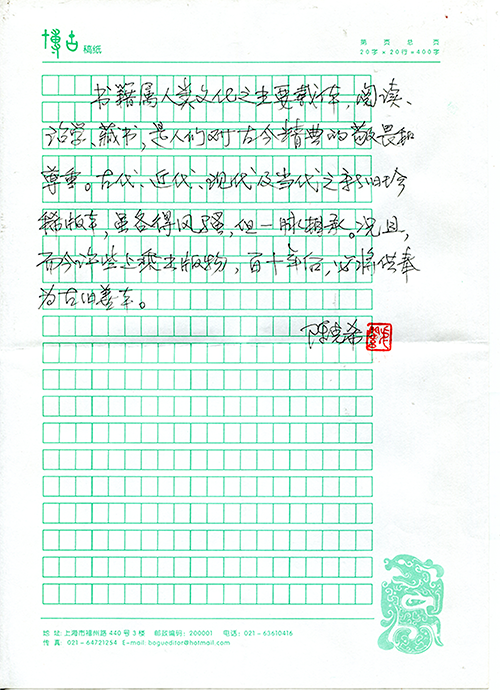 博古 稿纸
第 页 总 页
20字×20行=400字
书籍属人类文化之主要载体，阅读、
治学、藏书，是人们对古今精典的敬畏和
尊重。古代、近代、现代及当代之新旧珍
稀版本，虽各得风骚，但一脉相承。况且，
而今许些上乘出版物，百十年后，必将供奉
为古旧善本。
陈克希
地 址：上海市福州路440号3楼 邮政编码：200001 电话：021-63610416
传 真：021-64721254 E-mail: bogueditor@hotmail.com